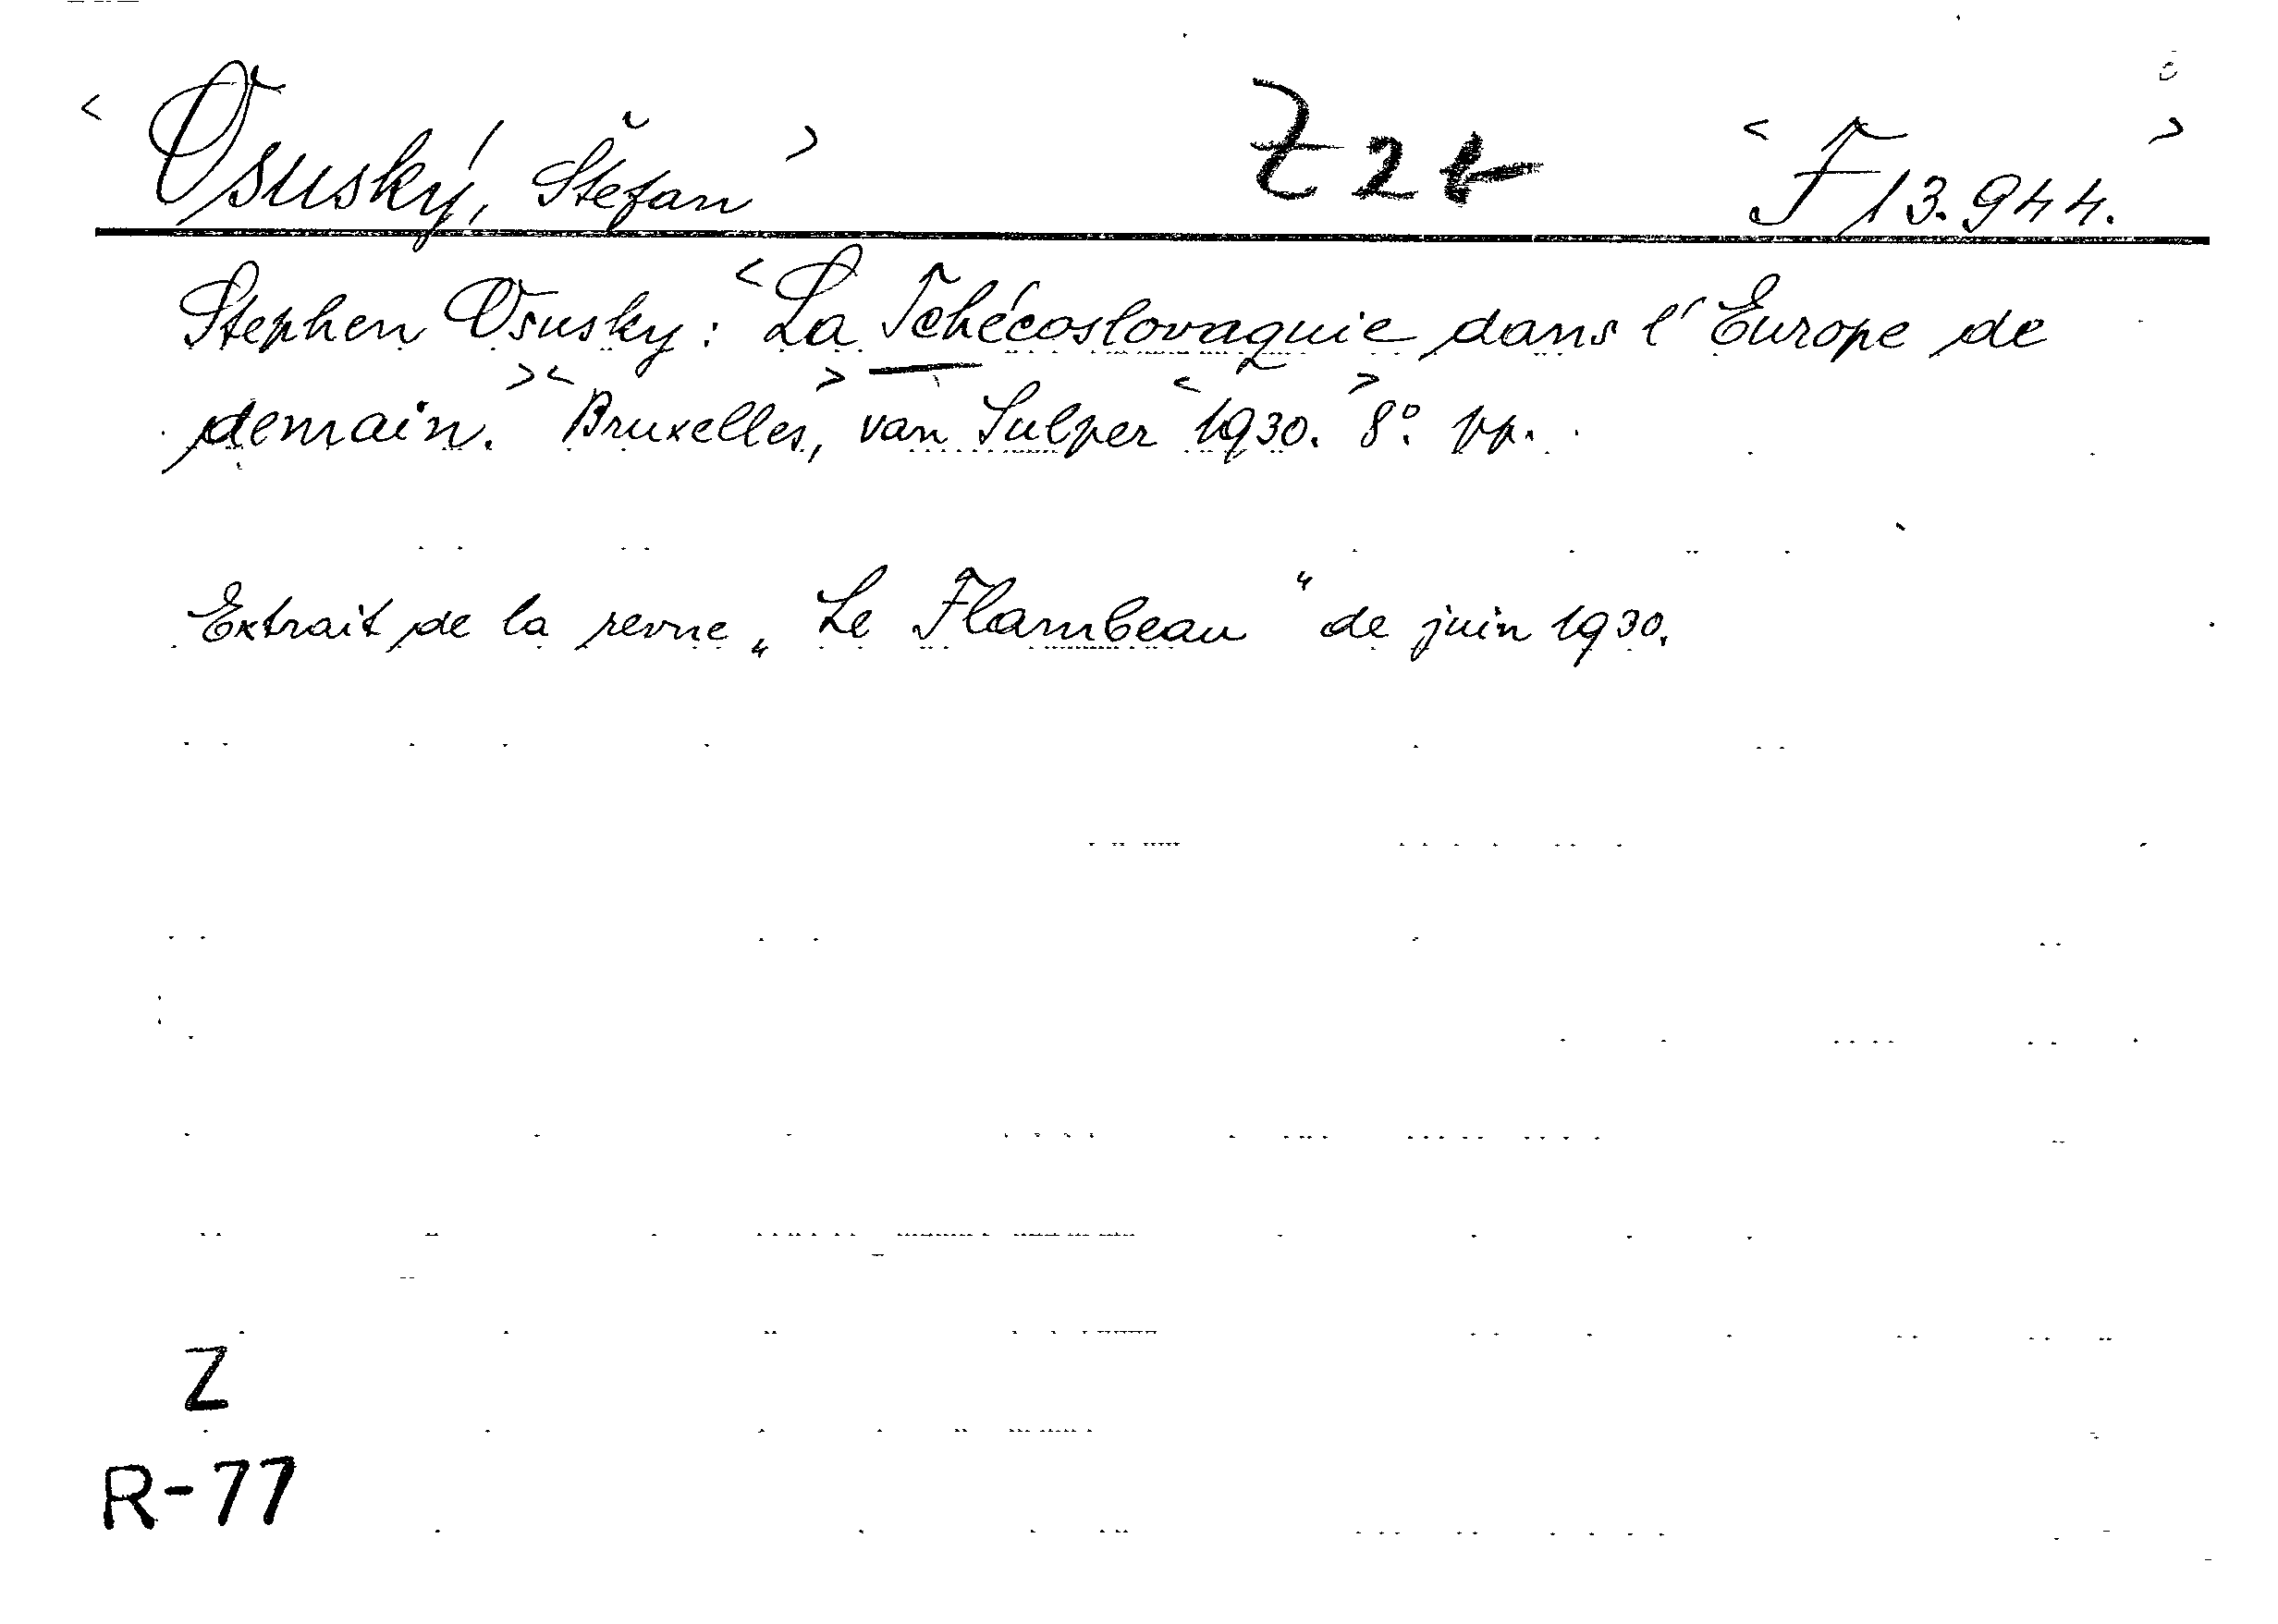 < Osuský, Štefan > < F 13.944. >
Stephen Osusky: < La Tchécoslovaquie dans l'Europe de
demain. > < Bruxelles, > van Sulper < 1930. > 8°. pp.
Extrait de la revue „Le Flambeau" de juin 1930.
Z
R-77